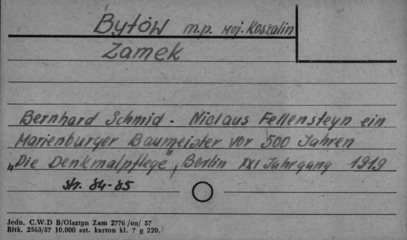 Bytów m.p. woj. Koszalin
Zamek
Bernhard Schmid - Niclaus Fellensteyn ein
Marienburger Baumeister vor 500 Jahren
„Die Denkmalpflege", Berlin XXI Jahrgang 1919
str. 84-85
Jedn. C.W.D B/Olsztyn Zam 2776/on/ 57
Bltk. 2563/57 10.000 szt. karton kl. 7 g 220.